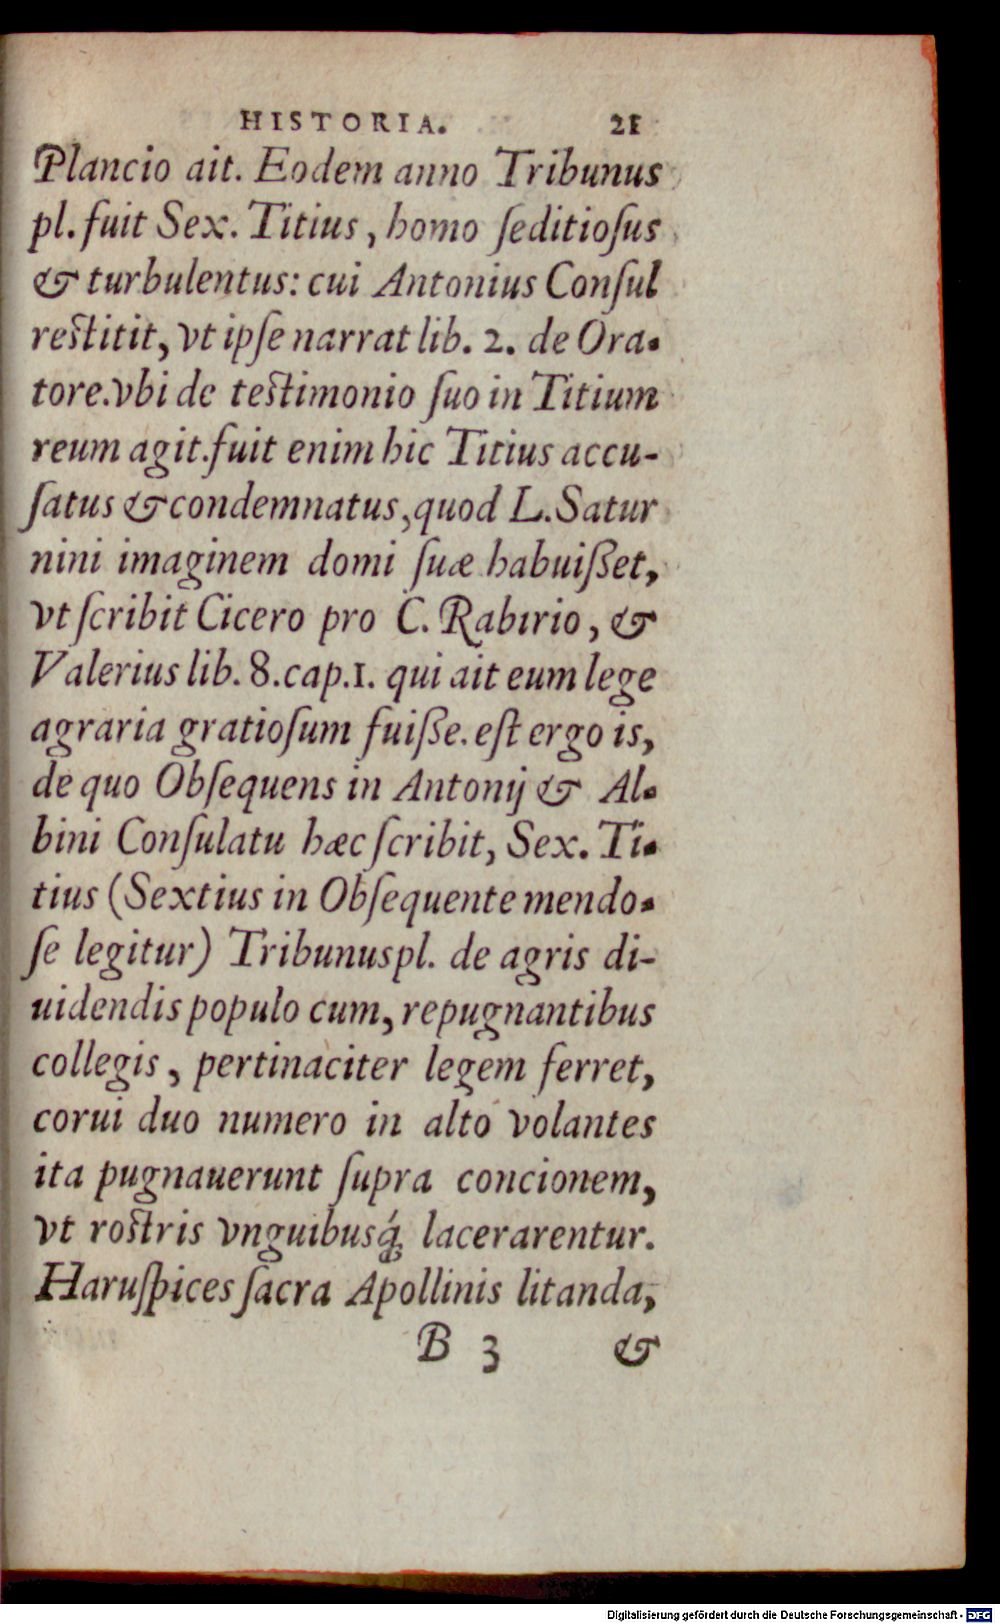 HISTORIA. 21
Plancio ait. Eodem anno Tribunus
pl. fuit Sex. Titius, homo ſeditioſus
& turbulentus: cui Antonius Conſul
reſtitit, vt ipſe narrat lib. 2. de Ora-
tore. vbi de teſtimonio ſuo in Titium
reum agit. fuit enim hic Titius accu-
ſatus & condemnatus, quod L. Satur
nini imaginem domi ſuæ habuiſſet,
vt ſcribit Cicero pro C. Rabirio, &
Valerius lib. 8. cap. 1. qui ait eum lege
agraria gratioſum fuiſſe. eſt ergo is,
de quo Obſequens in Antonij & Al-
bini Conſulatu hæc ſcribit, Sex. Ti-
tius (Sextius in Obſequente mendo-
ſe legitur) Tribunus pl. de agris di-
uidendis populo cum, repugnantibus
collegis, pertinaciter legem ferret,
corui duo numero in alto volantes
ita pugnauerunt ſupra concionem,
vt roſtris vnguibusq́; lacerarentur.
Haruſpices ſacra Apollinis litanda,
B 3 &
Digitalisierung gefördert durch die Deutsche Forschungsgemeinschaft - DFG